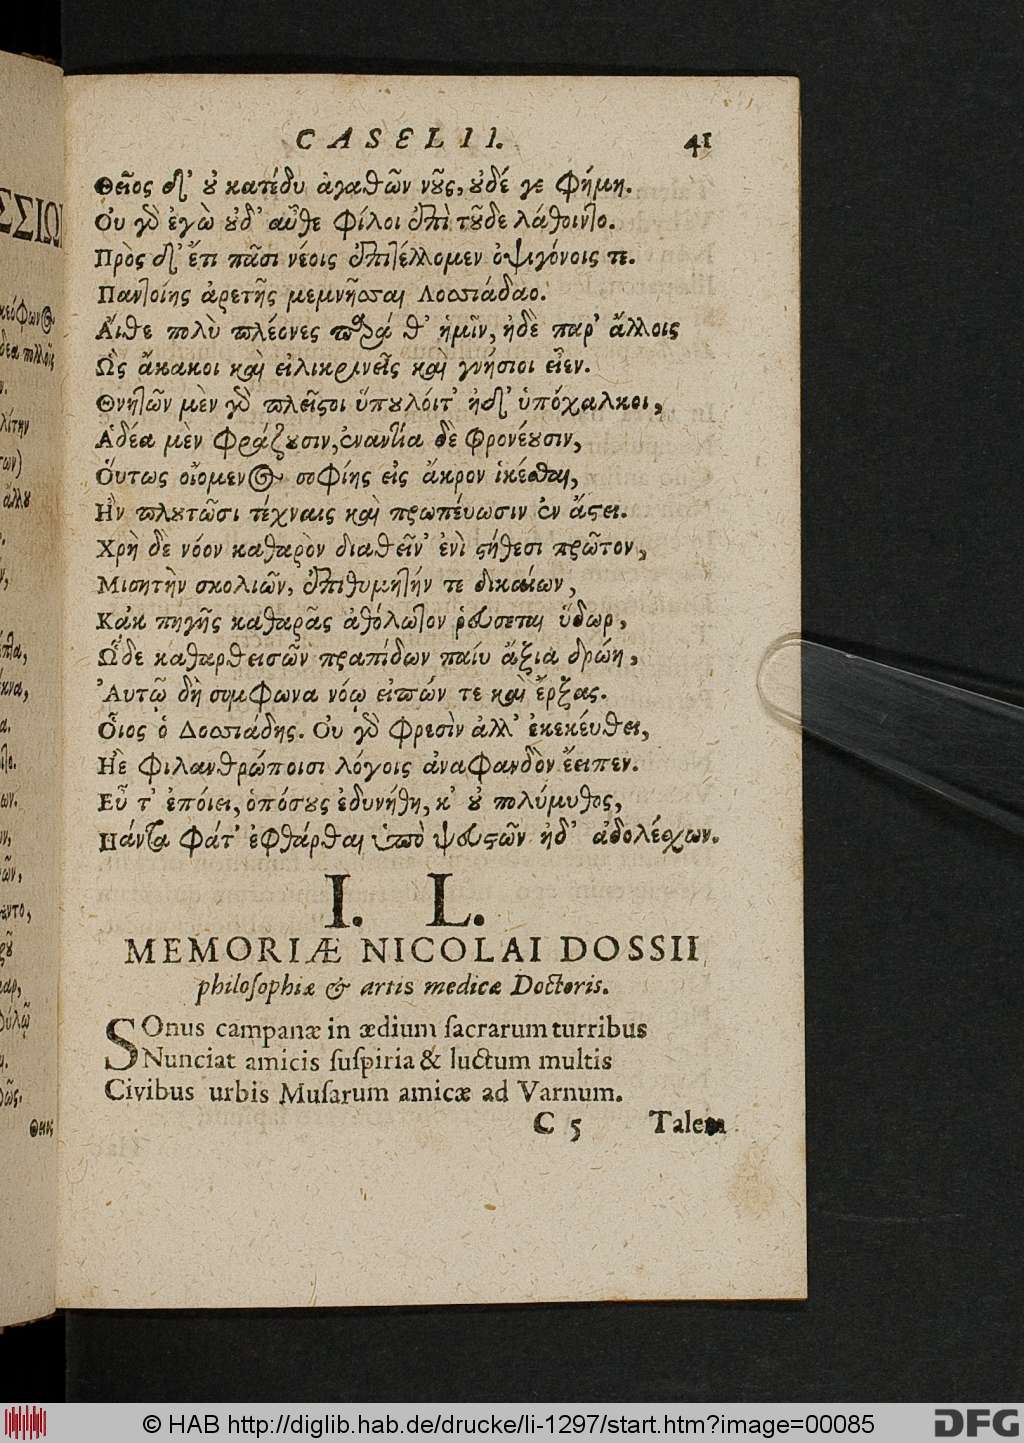 CASELII. 41
Θεῖος δ' οὐ κατέδυ ἀγαθῶν νοῦς, οὐδέ γε φήμη.
Οὐ γὸ ἐγὼ οὐδ' αὖθε φίλοι ἐπὶ τοῦδε λάθοιντο.
Πρὸς δ' ἔτι πᾶσι νέοις ἐπιτέλλομεν ὀψιγόνοις τε.
Παντοίης ἀρετῆς μεμνῆσθαι Δοσσιάδαο.
Αἴθε πολὺ πλέονες παρά θ' ἡμῖν, ἠδὲ παρ' ἄλλοις
Ὣς ἄκακοι καὶ εἰλικρινεῖς καὶ γνήσιοι εἶεν.
Θνητῶν μὲν γὸ πλεῖστοι ὕπουλοίτ' ἠδ' ὑπόχαλκοι,
Ἁδέα μὲν φράζουσιν, ἐναντία δὲ φρονέουσιν,
Ὅυτως οἰόμενος σοφίης εἰς ἄκρον ἱκέσθαι,
Ἢν πλουτῶσι τέχναις καὶ πρωπέυωσιν ἐν ἄστει.
Χρὴ δὲ νόον καθαρὸν διαθεῖν' ἐνὶ στήθεσι πρῶτον,
Μισητὴν σκολιῶν, ἐπιθυμητήν τε δικαίων,
Κἀκ πηγῆς καθαρᾶς ἀθόλωτον ῥεύσεται ὕδωρ,
Ὧδε καθαρθεισῶν πραπίδων παίυ ἄξια δρώη,
Ἀυτῷ δὴ συμφωνα νόῳ εἰπών τε καὶ ἔρξας.
Οἷος ὁ Δοσσιάδης. Οὐ γὸ φρεσὶν ἀλλ' ἐκεκέυθει,
Ἠὲ φιλανθρώποισι λόγοις ἀναφανδὸν ἔειπεν.
Εὖ τ' ἐπόιει, ὁπόσους ἐδυνήθη, κ' οὐ πολύμυθος,
Πάντα φάτ' ἐφθάρθαι ὑπὸ ψευστῶν ἠδ' ἀδολέσχων.
I. L.
MEMORIÆ NICOLAI DOSSII
philosophiæ & artis medicæ Doctoris.
SOnus campanæ in ædium sacrarum turribus
Nunciat amicis suspiria & luctum multis
Civibus urbis Musarum amicæ ad Varnum.
C 5 Talem
ΣΣΙΩ
Θεῖος
© HAB http://diglib.hab.de/drucke/li-1297/start.htm?image=00085
DFG